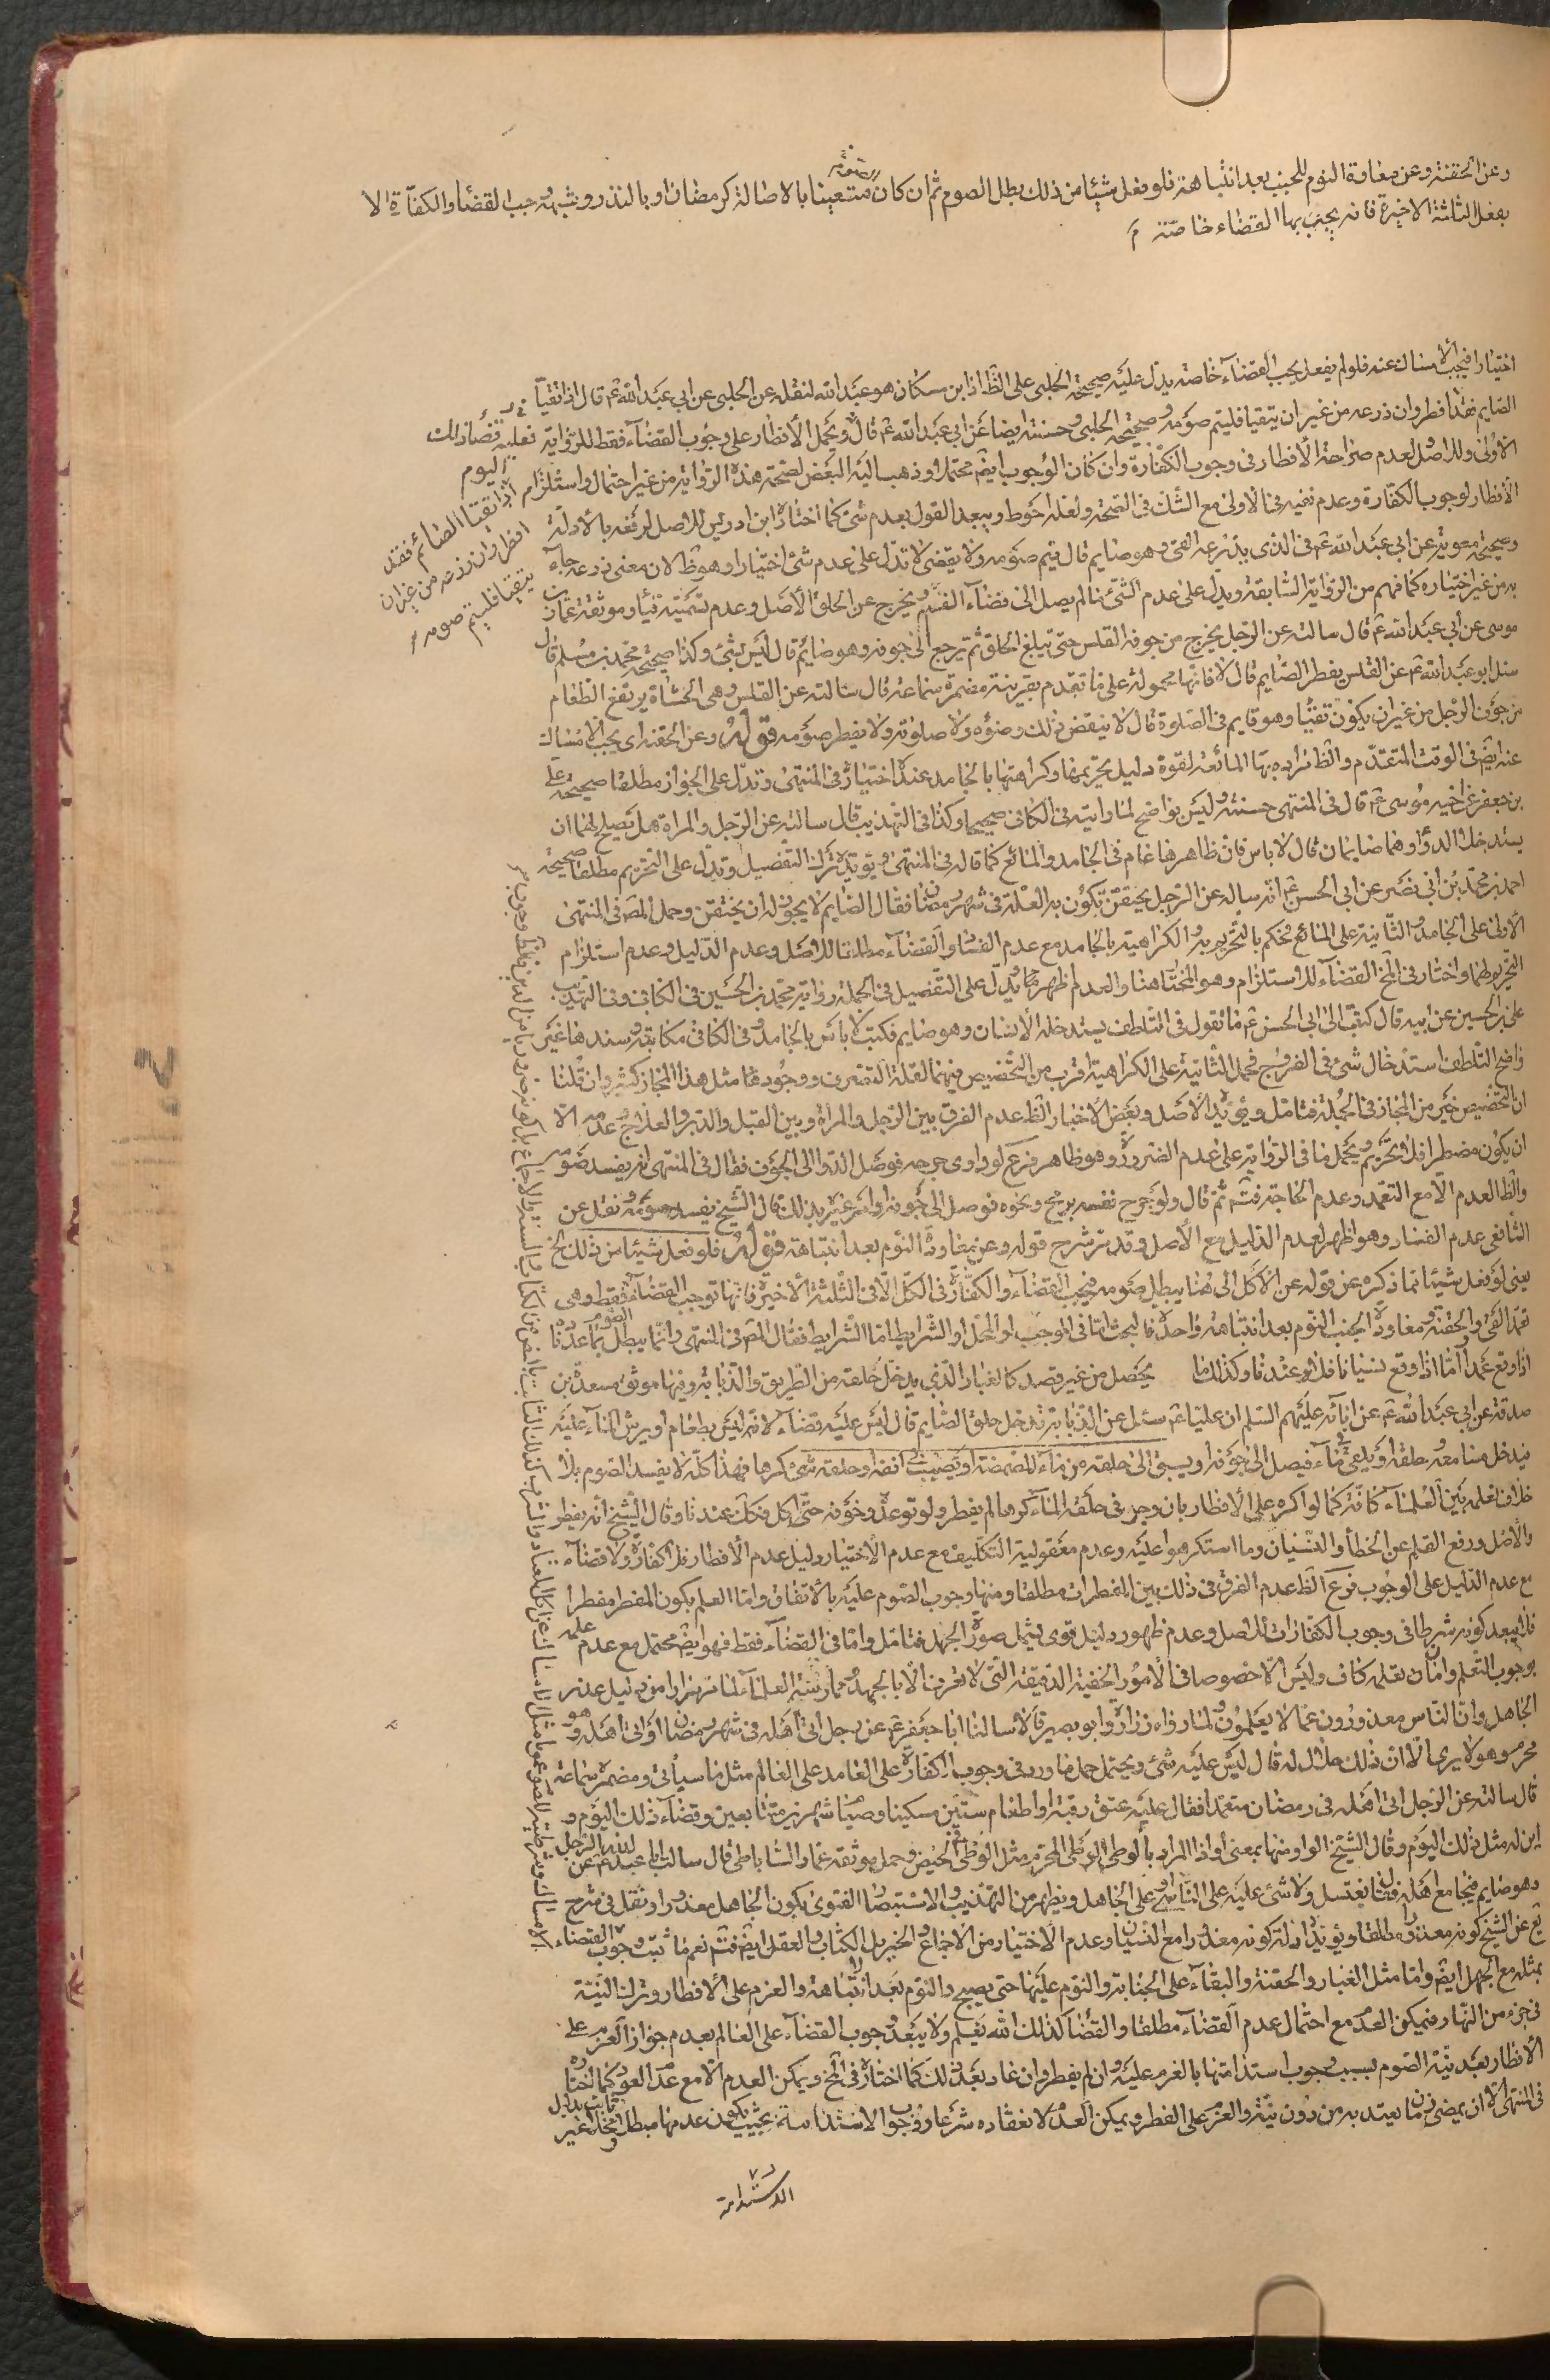 وعن الحقنة وعن معاودة النوم للجنب بعد انتباهته فلو فعل شيئا من ذلك بطل الصوم ثم ان كان متعينا بالاصالة كرمضان او بالنذر وشبهه وجب القضا والكفارة الا
بفعل الثلثة الاخيرة فانه يجب بها القضاء خاصة م
اختيارا فيجب الامساك عنه فلو لم يفعل يجب القضاء خاصة يدل عليه صحيحة الحلبى على الظ اذ ابن مسكان هو عبد الله لنقله عن الحلبى عن ابي عبد الله ع قال اذا تقيأ
الصايم فقد افطر وان ذرعه من غير ان يتقيأ فليتم صومه وصحيحة الحلبى وحسنته ايضا عن ابي عبد الله ع قال ويحمل الافطار على وجوب القضاء فقط للرواية
الاولى وللاصل لعدم صراحة الافطار فى وجوب الكفارة وان كان الوجوب ايضا محتملا وذهب اليه البعض لصحة هذه الرواية من غير احتمال واستلزام
الافطار لوجوب الكفارة وعدم نفيه فى الاولى مع الشك فى الصحة ولعله احوط ويبعد القول بعدم شئ كما اختاره ابن ادريس للاصل لرفعه بالادلة
وصحيحة معوية عن ابي عبد الله ع فى الذى يذرعه القئ وهو صايم قال يتم صومه ولا يقضى لا تدل على عدم شئ اختيارا وهو ظ لان معنى ذرعه جاء
به من غير اختياره كما فهم من الرواية السابقة ويدل على عدم الشئ ما لم يصل الى فضاء الفم ويخرج عن الحلق الاصل وعدم تسميته قيئا وموثقة عمار بن
موسى عن ابي عبد الله ع قال سالته عن الرجل يخرج من جوفه القلس حتى يبلغ الحلق ثم يرجع الى جوفه وهو صايم قال ليس بشئ وكذا صحيحة محمد بن مسلم قال
سئل ابو عبد الله ع عن القلس يفطر الصايم قال لا فانها محمولة على ما تقدم بقرينة مضمرة سماعة قال سالته عن القلس وهى الجشأة يرتفع الطعام
من جوف الرجل من غير ان يكون تقيأ وهو قايم فى الصلوة قال لا ينقض ذلك وضوئه ولا صلوته ولا يفطر صومه قوله وعن الحقنة اى يجب الامساك
عنه ايضا فى الوقت المتقدم والظ مراده بها المائعة لقوة دليل تحريمها وكراهتها بالجامد عنده اختياره فى المنتهى وتدل على الجواز مطلقا صحيحة على
بن جعفر عن اخيه موسى ع قال فى المنتهى حسنة وليس بواضح لما رايته فى الكافى صحيحا وكذا فى التهذيب قال سالته عن الرجل والمراة هل يصلح لهما ان
يستدخلا الدواء وهما صايمان قال لا باس فان ظاهرها عام فى الجامد والمائع كما قاله فى المنتهى ويؤيده ترك التفصيل وتدل على التحريم مطلقا صحيحة
احمد بن محمد بن ابي نصر عن ابي الحسن ع انه ساله عن الرجل يحتقن تكون به العلة فى شهر رمضان فقال الصايم لا يجوز له ان يحتقن وحمل المص فى المنتهى
الاولى على الجامد والثانية على المائع فحكم بالتحريم به والكراهية بالجامد مع عدم الفساد والقضاء مطلقا للاصل وعدم الدليل وعدم استلزام
التحريم لهما واختار فى المخ القضاء للاستلزام وهو المختار هنا والعدم اظهر مما يدل على التفصيل فى الجملة رواية محمد بن الحسين فى الكافى وفى التهذيب
على بن الحسين عن ابيه قال كتبت الى ابي الحسن ع ما تقول فى التلطف يستدخله الانسان وهو صايم فكتب لا باس بالجامد وفى الكافى مكاتبة وسندها غير
واضح التلطف استدخال شئ فى الفرج فحمل الثانية على الكراهية اقرب من التخصيص فيهما لقلة التصرف ووجود مثل هذا المجاز كثير وان قلنا
ان التخصيص خير من المجاز فى الجملة فتامل ويؤيده الاصل وبعض الاخبار الظ عدم الفرق بين الرجل والمراة وبين القبل والدبر والعلاج وعدمه الا
ان يكون مضطرا فلا تحريم ويحمل ما فى الرواية على عدم الضرورة وهو ظاهر فرع لو داوى جرحه فوصل الدوا الى الجوف فقال فى المنتهى انه يفسد صومه
والظ العدم الا مع التعمد وعدم الحاجة فت ثم قال ولو جرح نفسه برمح ونحوه فوصل الى جوفه او امر غيره بذلك قال الشيخ يفسد صومه ونقل عن
الشافعى عدم الفساد وهو اظهر لعدم الدليل مع الاصل وقد مر شرح قوله وعن معاودة النوم بعد انتباهته قوله فلو فعل شيئا من ذلك الخ
يعنى لو فعل شيئا مما ذكره عن قوله عن الاكل الى هنا يبطل صومه فيجب القضاء والكفارة فى الكل الا فى الثلثة الاخيرة فانها توجب القضاء فقط وهى
تعمد القئ والحقنة ومعاودة الجنب النوم بعد انتباهته واحدة فالبحث اما فى الموجب او المحل او الشرايط اما الشرايط فقال المص فى المنتهى وانما يبطل الصوم بما عددناه
اذا وقع عمدا اما اذا وقع نسيانا فلا عندنا وكذلك ما يحصل من غير قصد كالغبار الذى يدخل حلقه من الطريق والذبابة وفيها موثق مسعدة بن
صدقة عن ابي عبد الله ع عن ابائه عليهم السلم ان عليا ع سئل عن الذبابة تدخل حلق الصايم قال ليس عليه قضاء لانه ليس بطعام او يرش الماء عليه
فيدخل مسامعه وحلقه او يلقى فى ماء فيصل الى جوفه او يسبق الى حلقه من ماء المضمضة او يصب فى انفه وحلقه شئ كرها فهذا كله لا يفسد الصوم بلا
خلاف نعلمه بين العلماء كافة كما لو اكره على الافطار بان وجر فى حلقه الماء كرها لم يفطر ولو توعده وخوفه حتى اكل فكك عندنا وقال الشيخ انه يفطر
والاصل ورفع القلم عن الخطأ والنسيان وما استكرهوا عليه وعدم معقولية التكليف مع عدم الاختيار دليل عدم الافطار فلا كفارة ولا قضاء
مع عدم الدليل على الوجوب فرع الظ عدم الفرق فى ذلك بين المفطرات مطلقا ومنها وجوب الصوم عليه بالاتفاق واما العلم بكون المفطر مفطرا
فلا يبعد كونه شرطا فى وجوب الكفارات للاصل وعدم ظهور دليل قوى يشمل صورة الجهل فتامل واما فى القضاء فقط فهو ايضا محتمل مع عدم علمه
بوجوب التعلم وامكان تعلمه كاف وليس الا خصوصا فى الامور الخفية الدقيقة التى لا تعرف الا بالجهد وممارسة العلماء لما مر مرارا من دليل عذر
الجاهل وان الناس معذورون عما لا يعلمون ولما رواه زرارة وابو بصير قالا سالنا ابا جعفر ع عن رجل اتى اهله فى شهر رمضان او اتى اهله وهو
محرم وهو لا يرى الا ان ذلك حلال له قال ليس عليه شئ ويحتمل حمل ما ورد فى وجوب الكفارة على العامد على العالم مثل ما سيأتى ومضمرة سماعة
قال سالته عن الرجل اتى اهله فى رمضان متعمدا فقال عليه عتق رقبة او اطعام ستين مسكينا وصيام شهرين متتابعين وقضاء ذلك اليوم و
اين له مثل ذلك اليوم وقال الشيخ الواو منها بمعنى او اذا المراد بالوطى الوطى المحرم مثل الوطى فى الحيض وحمل موثقة عمار الساباطى قال سالت ابا عبد الله ع عن الرجل
وهو صايم فيجامع اهله فقال يغتسل ولا شئ عليه على الناسى وعلى الجاهل ويظهر من التهذيب والاستبصار الفتوى بكون الجاهل معذورا ونقل فى شرح
يع عن الشيخ كونه معذورا مطلقا ويؤيده ادلة كونه معذورا مع النسيان وعدم الاختيار من الاجماع والخبر بل الكتاب والعقل ايضا فت نعم ما ثبت وجوب القضاء
بمثله مع الجهل ايضا واما مثل الغبار والحقنة والبقاء على الجنابة والنوم عليها حتى يصبح والنوم بعد انتباهته والعزم على الافطار وترك النية
فى جزء من النهار فيمكن العدم مع احتمال عدم القضاء مطلقا والقضا كذلك الله يعلم ولا يبعد وجوب القضاء على العالم بعدم جواز العزم على
الافطار بعد نية الصوم بسبب وجوب استدامتها بالعزم عليه وان لم يفطر وان عاد بعد ذلك كما اختاره فى المخ ويمكن العدم الا مع عدم العود كما اختاره
فى المنتهى الا ان يمضى زمن ما يعتد به من دون نية والعزم على الفطر ويمكن العدم لانعقاده شرعا ووجوب الاستدامة بحيث يكون عدمها مبطلا ومخلا غير
ثابت بدليل
الاستدامة
فعليه قضاء ذلك
اليوم
اذا تقيأ الصائم فقد
افطر وان ذرعه من غير ان
يتقيأ فليتم صومه